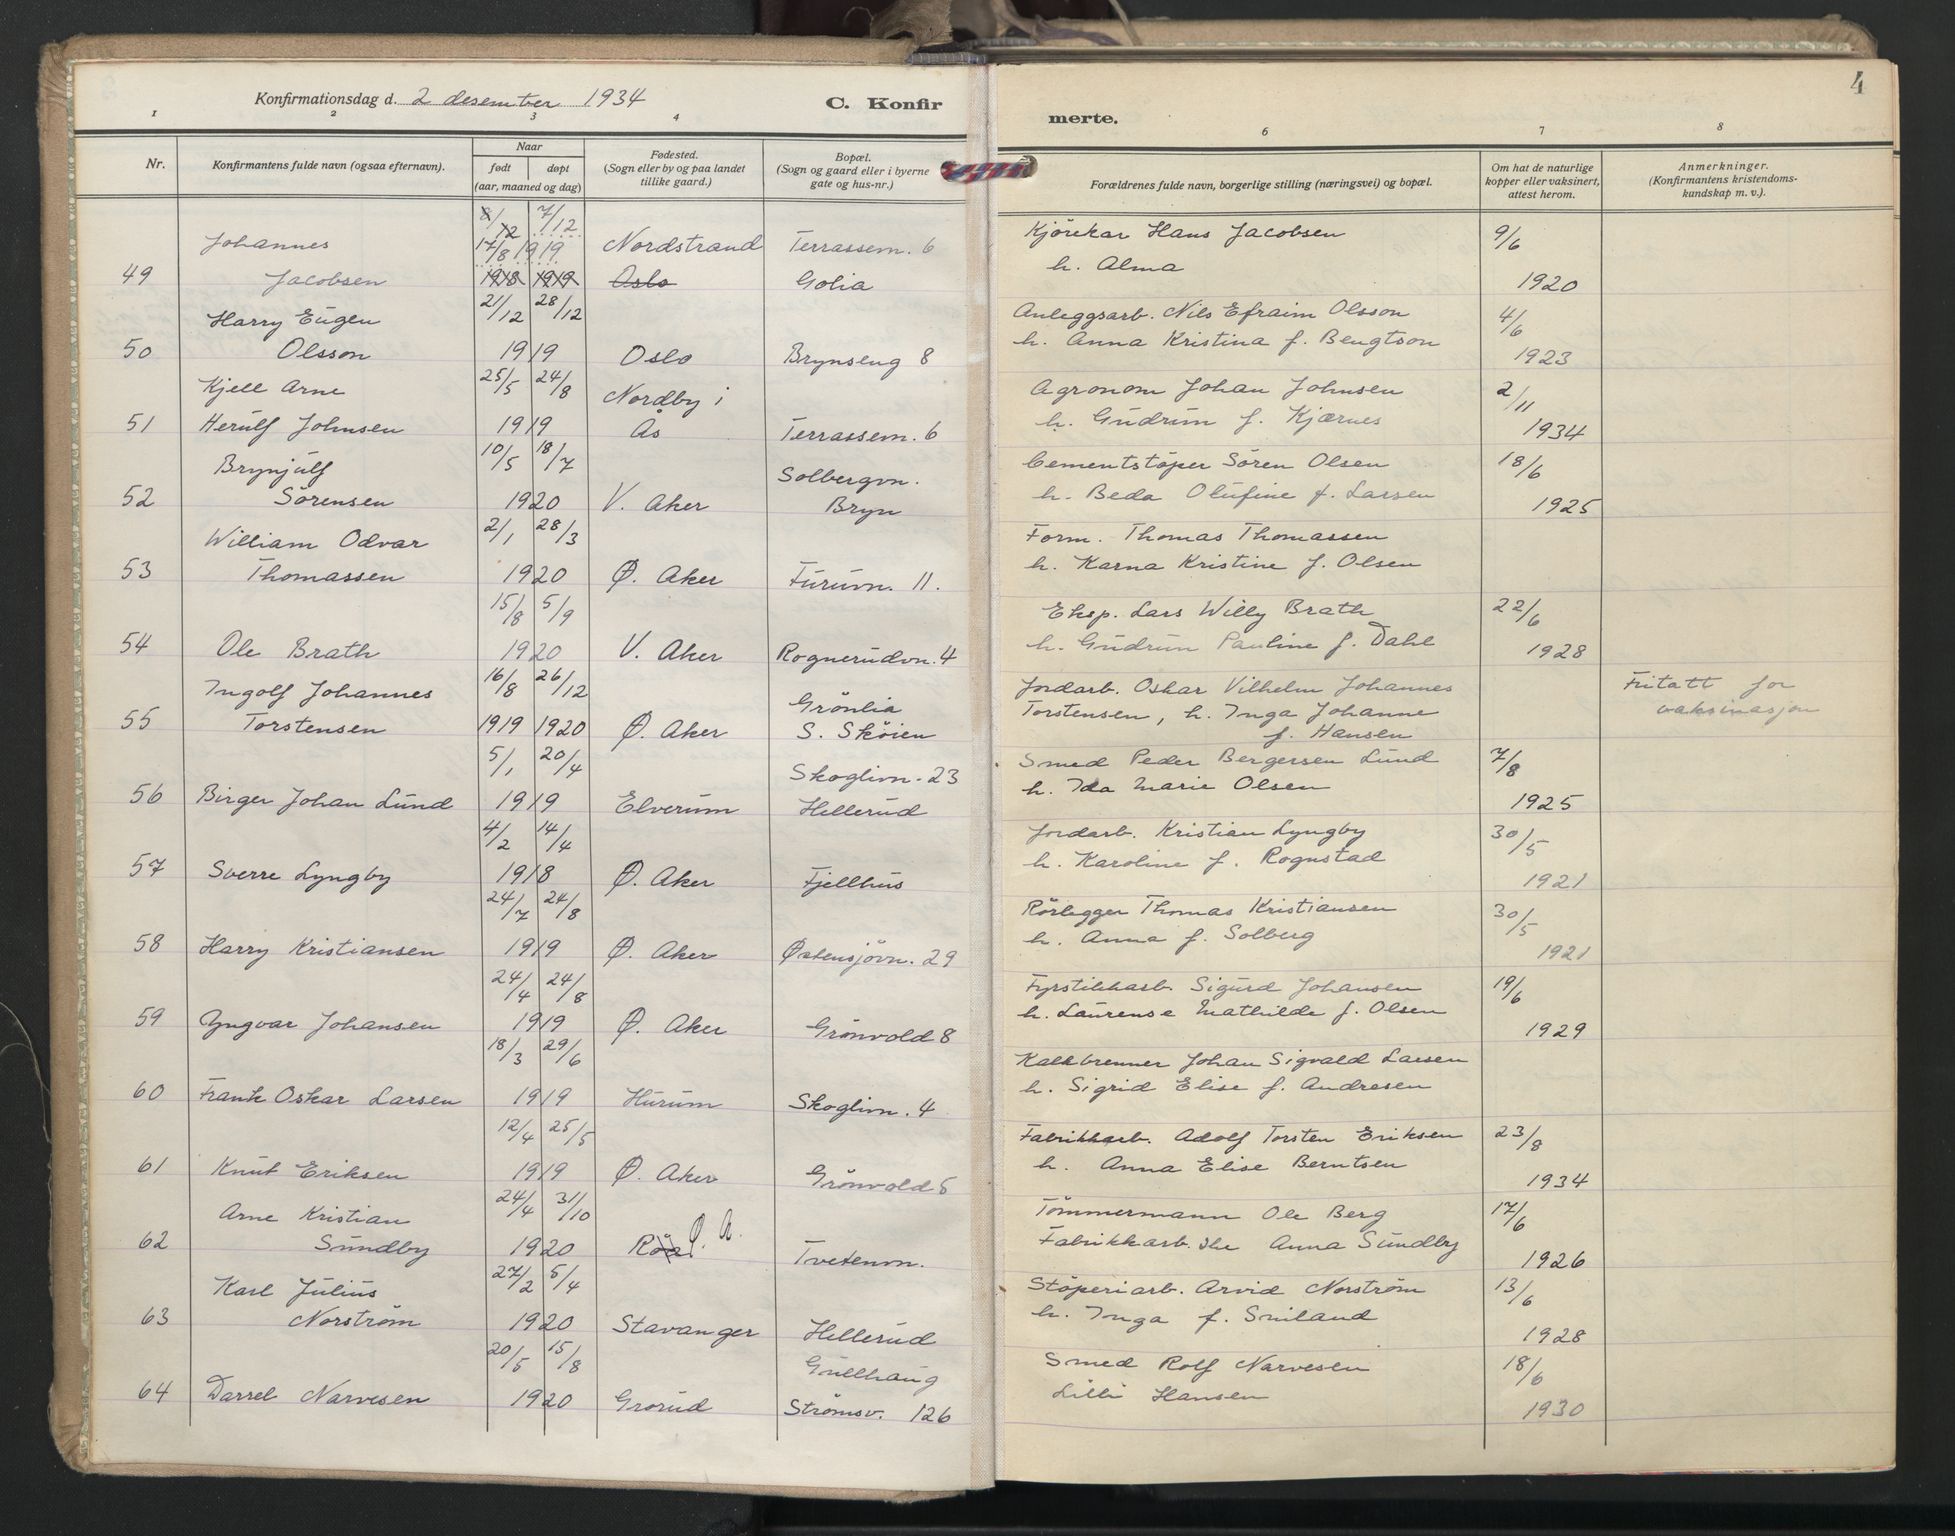 Konfirmationsdag d. 2 desember 1934
C. Konfir
merte.
4
1 2 3 4 6 7 8
Nr.
Konfirmantens fulde navn (ogsaa efternavn).
Naar
født døpt
(aar, maaned og dag)
Fødested.
(Sogn eller by og paa landet
tillike gaard.)
Bopæl.
(Sogn og gaard eller i byerne
gate og hus-nr.)
Forældrenes fulde navn, borgerlige stilling (næringsvei) og bopæl.
Om hat de naturlige
kopper eller vaksinert,
attest herom.
Anmerkninger.
(Konfirmantens kristendoms-
kundskap m. v.).
8/12 7/12
Johannes 17/8 1919 Nordstrand Terrassem. 6 Kjørekar Hans Jacobsen 9/6
49 Jacobsen 1918 1919 Oslo Golia h. Alma 1920
Harry Eugen 21/12 28/12 Anleggsarb. Nils Efraim Olsson 4/6
50 Olsson 1919 Oslo Brynseng 8 h. Anna Kristina f. Bengtson 1923
Kjell Arne 25/5 24/8 Nordby i Agronom Johan Johnsen 2/11
51 Herulf Johnsen 1919 Ås Terrassem. 6 h. Gudrun f. Kjærnes 1934
Brynjulf 10/5 18/7 Solbergvn. Cementstöper Sören Olsen 18/6
52 Sörensen 1920 V. Aker Bryn h. Beda Olufine f. Larsen 1925
William Odvar 2/1 28/3 Form. Thomas Thomassen
53 Thomassen 1920 Ø. Aker Furuvn. 11. h. Karna Kristine f. Olsen
15/8 5/9 Eksp. Lars Willy Brath 22/6
54 Ole Brath 1920 V. Aker Rognerudvn. 4 h. Gudrun Pauline f. Dahl 1928
Ingolf Johannes 16/8 26/12 Grönlia Jordarb. Oskar Vilhelm Johannes Fritatt for
55 Torstensen 1919 1920 Ø. Aker S. Sköien Torstensen, h. Inga Johanne vaksinasjon
f. Hansen
5/1 20/4 Skoglivn. 23 Smed Peder Bergersen Lund 7/8
56 Birger Johan Lund 1919 Elverum Hellerud h. Ida Marie Olsen 1925
4/2 14/4 Jordarb. Kristian Lyngby 30/5
57 Sverre Lyngby 1918 Ø. Aker Fjellhus h. Karoline f. Rognstad 1921
24/7 24/8 Rörlegger Thomas Kristiansen 30/5
58 Harry Kristiansen 1919 Ø. Aker Østensjövn. 29 h. Anna f. Solberg 1921
24/4 24/8 Fyrstikkarb. Sigurd Johansen 19/6
59 Yngvar Johansen 1919 Ø. Aker Grönvold 8 h. Laurense Mathilde f. Olsen 1929
18/3 29/6 Kalkbrenner Johan Sigvald Larsen
60 Frank Oskar Larsen 1919 Hurum Skoglivn. 4 h. Sigrid Elise f. Andresen
12/4 25/5 Fabrikkarb. Adolf Torsten Eriksen 23/8
61 Knut Eriksen 1919 Ø. Aker Grönvold 5 h. Anna Elise Berntsen 1934
Arne Kristian 24/4 31/10 Ø. A. Tömmermann Ole Berg 17/6
62 Sundby 1920 Röa Tvetenvn. Fabrikkarb.ske Anna Sundby 1926
Karl Julius 27/2 5/4 Stöperiarb. Arvid Norström 13/6
63 Norström 1920 Stavanger Hellerud h. Inga f. Smiland 1928
20/5 15/8 Gullhaug Smed Rolf Narvesen 18/6
64 Darrel Narvesen 1920 Grorud Strömsv. 126 Lilli Hansen 1930